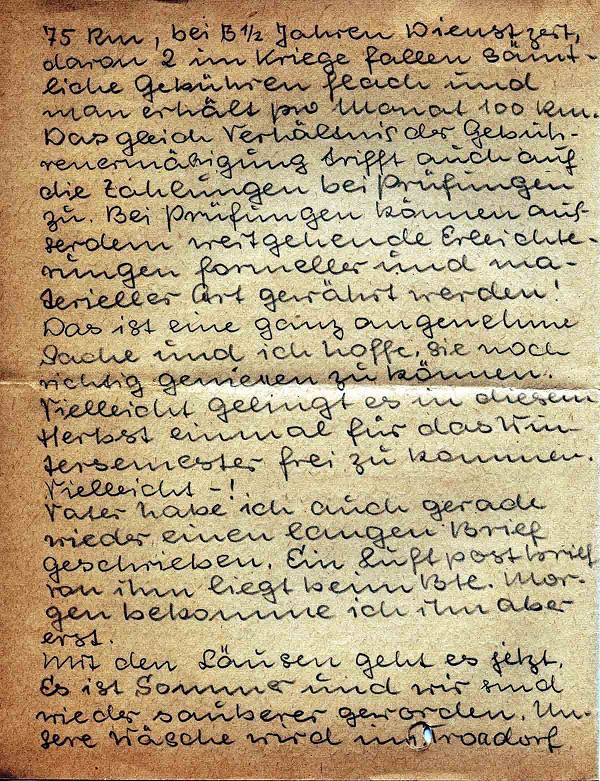 75 Rm, bei 3½ Jahren Dienstzeit,
daran 2 im Kriege fallen sämt-
liche Gebühren flach und
man erhält pro Monat 100 Rm.
Das gleich Verhältnis der Gebüh-
renermäßigung trifft auch auf
die Zahlungen bei Prüfungen
zu. Bei Prüfungen können aus-
serdem weitgehende Erleichte-
rungen formeller und ma-
terieller Art gewährt werden!
Das ist eine ganz angenehme
Sache und ich hoffe, sie noch
richtig genießen zu können.
Vielleicht gelingt es in diesem
Herbst einmal für das Win-
tersemester frei zu kommen.
Vielleicht -!
Vater habe ich auch gerade
wieder einen langen Brief
geschrieben. Ein Luftpostbrief
von ihm liegt beim Btl. Mor-
gen bekomme ich ihn aber
erst.
Mit den Läusen geht es jetzt.
Es ist Sommer und wir sind
wieder sauberer geworden. Un-
sere Wäsche wird im